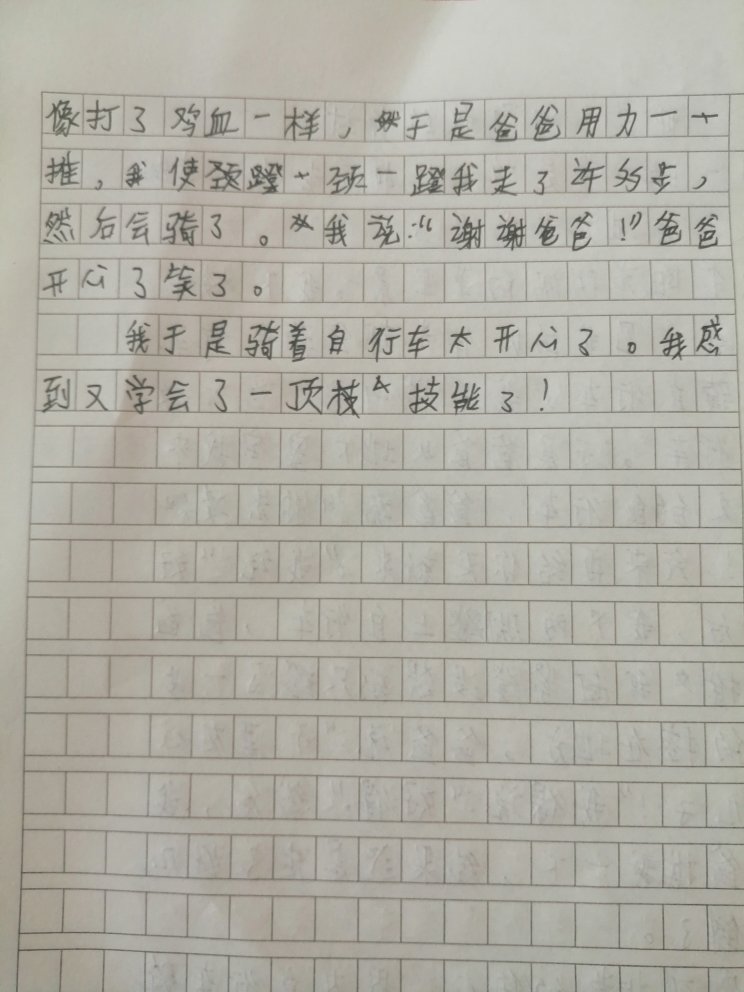 像打了鸡血一样，于是爸爸用力一
推，我使颈蹬一颈一蹬我走了许多步，
然后会骑了。我说：“谢谢爸爸！”爸爸
开心了笑了。
我于是骑着自行车太开心了。我感
到又学会了一顶技能了！